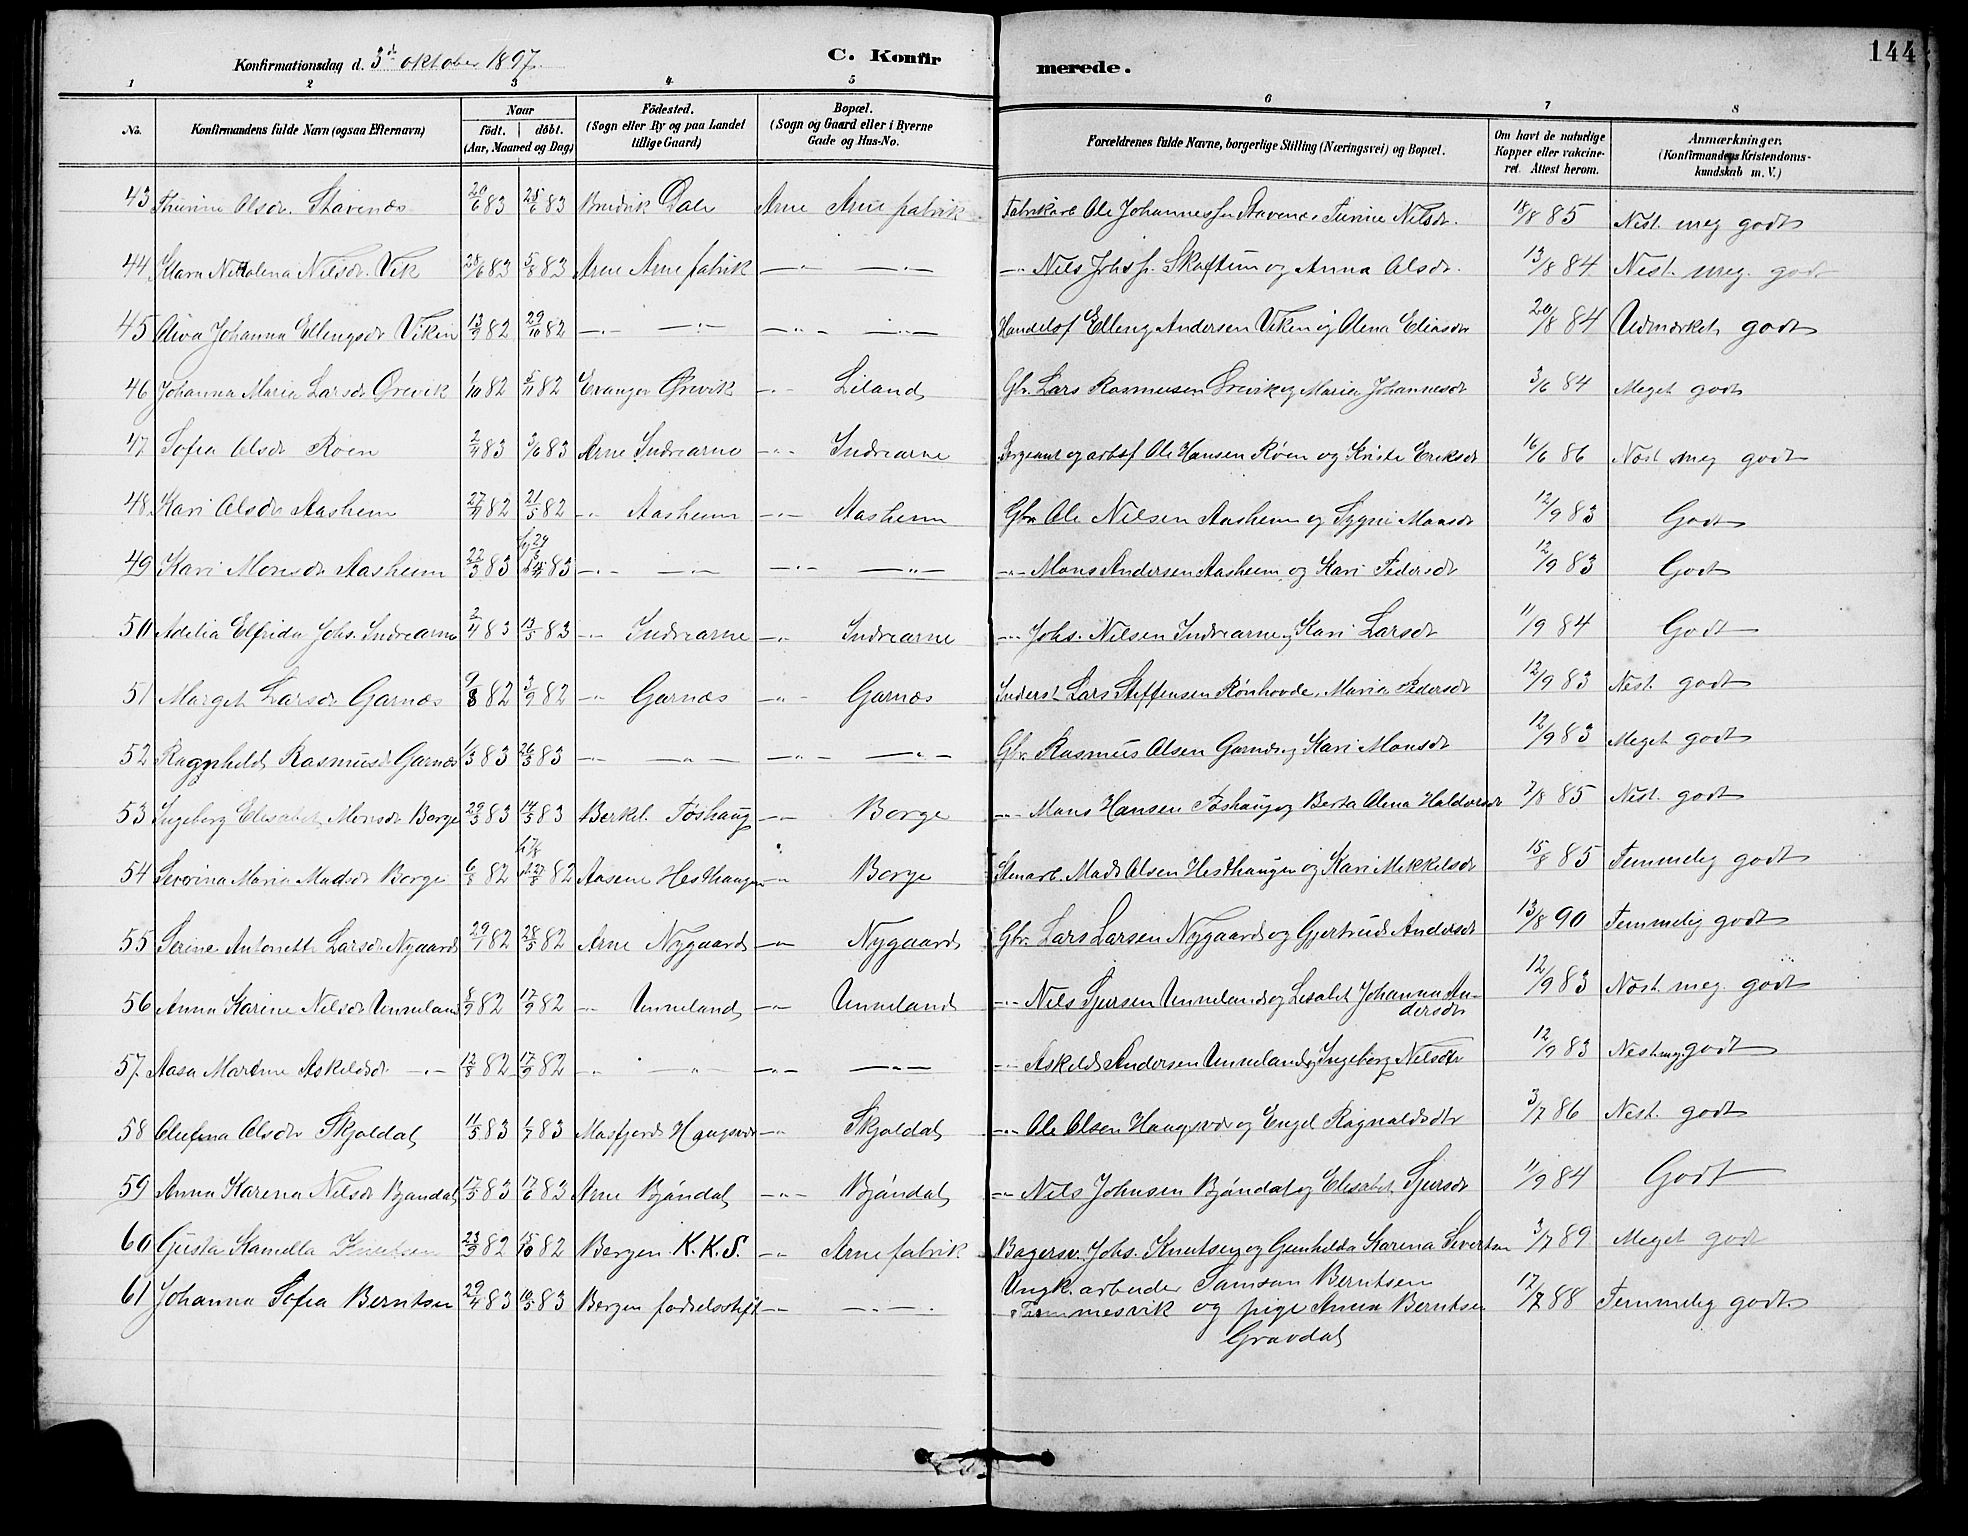 144
Konfirmationsdag d. 3d oktober 1897.
C. Konfirmerede.
1 2 3 4 5 6 7 8
No. Konfirmandens fulde Navn (ogsaa Efternavn) Naar födt. döbt. (Aar, Maaned og Dag) Födested. (Sogn eller By og paa Landet tillige Gaard) Bopæl. (Sogn og Gaard eller i Byerne Gade og Hus-No. Forældrenes fulde Navne, borgerlige Stilling (Næringsvei) og Bopæl. Om havt de naturlige Kopper eller vakcineret. Attest herom. Anmærkninger. (Konfirmandens Kristendomskundskab m. V.)
43 Thurine Olsdr. Stavenæs 20/6 83 28/6 83 Bruvik Dale Arne Arne fabrik Fabrikarb. Ole Johannessen Stavenæs Turine Nilsdr. 18/8 85 Nest. meg godt
44 Klara Nikolena Nilsdr. Vik 28/6 83 5/8 83 Arne Arne fabrik —"— —"— —"— Nils Johs f. Skaftun og Anna Olsdr. 13/8 84 Nest. meg. godt
45 Oliva Johanna Ellingsdr Viken 13/9 82 29/10 82 —"— —"— —"— —"— Handelsf Elleng Andersen Viken og Olena Eliasdr 20/8 84 Udmærket godt
46 Johanna Maria Larsdr Örevik 1/10 82 5/11 82 Evanger Örevik —"— Liland Gbr. Lars Rasmusen Örevik og Maria Johannesdr 3/6 84 Meget godt
47 Sofia Olsdr Röen 2/4 83 3/6 83 Arne Indrearne —"— Indrearne Sergeant og arbsf Ole Hansen Röen og Kriste Eriksdr 16/6 86 Næst meg godt
48 Kari Olsdr Aasheim 27/4 82 21/5 82 —"— Aasheim —"— Aasheim Gbr. Ole Nilsen Aasheim og Sygni Monsdr 12/9 83 Godt
49 Kari Monsdr Aasheim 22/3 83 83 —"— —"— —"— —"— —"— Mons Andersen Aasheim og Kari Pedersdr 12/9 83 Godt
50 Adelia Elfrida Johs. Indrearne 2/4 83 13/5 83 —"— Indrearne —"— Indrearne —"— Johs. Nilsen Indrearne og Kari Larsdr 11/9 84 Godt
51 Marget Larsdr Garnæs 9/8 82 3/9 82 —"— Garnæs —"— Garnæs Inderst Lars Steffensen Rönhovde, Maria Pedersdr 12/9 83 Nest. godt
52 Ragnhild Rasmusd Garnæs 1/3 83 26/3 83 —"— —"— —"— —"— Gbr. Rasmus Olsen Garnæs og Kari Monsdr 12/9 83 Meget godt
53 Ingeborg Elisabet Monsdr Borge 29/3 83 14/5 83 Birkel. Töshaug —"— Borge —"— Mons Hansen Töshaug og Berta Olena Haldorsdr 7/8 85 Nest. godt
54 Severina Maria Madsdr Borge 6/8 82 27/8 82 Aasene Hesthaugen —"— Borge Stenarb. Mads Olsen Hesthaugen og Kari Mikkelsdr 15/8 85 Temmelig godt
55 Serine Antonette Larsdr Nygaard 29/1 82 28/5 82 Arne Nygaard —"— Nygaard Gbr. Lars Larsen Nygaard og Gjertrud Andersdr 13/8 90 Temmelig godt
56 Anna Karine Nilsdr Unneland 8/9 82 17/9 82 —"— Unneland —"— Unneland —"— Nils Sjursen Unneland og Lisabet Johanna Andersdr 12/9 83 Næst. meg. godt
57. Aasa Martine Askeldsdr —"— 12/8 82 17/9 82 —"— —"— —"— —"— —"— Askeld Andersen Unneland og Ingeborg Nilsdtr 12/9 83 Nest meg. godt
58 Olufina Olsdtr Skjoldal 11/5 83 1/7 83 Masfjord Haugsvær —"— Skjoldal —"— Ole Olsen Haugsvær og Engel Ragnaldsdtr 3/7 86 Nest. godt
59 Anna Karena Nilsdr Bjøndal 17/5 83 17/6 83 Arne Bjöndal —"— Bjöndal —"— Nils Johnsen Bjöndal og Elisabet Sjursdr 11/9 84 Godt
60 Gusta Kamella Knutsen 23/9 82 15/10 82 Bergen K. K. S. —"— Arne fabrik Bagersv. Johs. Knutsen og Gunhilda Karena Sivertsen 3/7 89 Meget godt
61 Johanna Sofia Berntsen 29/4 83 10/5 83 Bergen fødselsstift —"— —"— Ungk. arbeider Samson Berntsen
Tommesvik og pige Anna Berntsen 17/7 88 Temmelig godt.
Gravdal